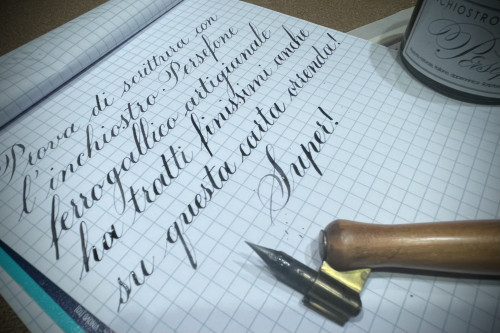 Prova di scrittura con
l'inchiostro Persefone
ferrogallico artigianale
ha tratti finissimi anche
su questa carta orrenda!
Super!
INCHIOSTRO